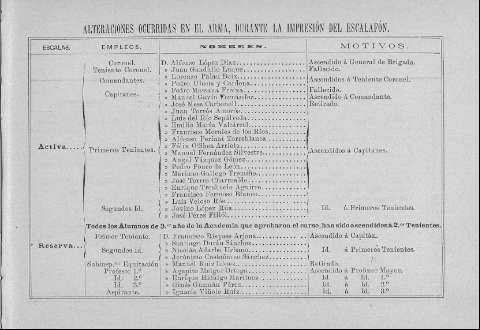 ALTERACIONES OCURRIDAS EN EL ARMA, DURANTE LA IMPRESIÓN DEL ESCALAFÓN.
ESCALAS. EMPLEOS. NOMBRES. MOTIVOS.
Coronel. D. Alfonso López Díaz Ascendido á General de Brigada.
Teniente Coronel. » Juan Fallecido.
Comandantes. » Lorenzo
» Pedro Ubeda y Cardona Ascendidos á Teniente Coronel.
Capitanes. » Pedro Fallecido.
» Manuel García Fernández Ascendido á Comandante.
» José Mesa Retirado.
» Juan Torres
» Luis del Río Sepúlveda
» Emilio María Valcárcel
» Francisco Morales de los Ríos
» Alfonso
» Félix O'Shea Arrieta
Activa Primeros Tenientes » Manuel Fernández Silvestre Ascendidos á Capitanes.
» Angel Vázquez Gómez
» Pedro Ponce de León
» Mariano Gallego
» José Torres
» Enrique Aguirre
» Francisco Blanco
» Luis Veloso Río
Segundos Id. » Jovino López Rúa Id. á Primeros Tenientes.
» José Pérez
Todos los Alumnos de 3.er año de la Academia que aprobaron el curso, han sido ascendidos á 2.os Tenientes.
Primer Teniente. D. Francisco Ascendido á Capitán.
» Santiago Durán Sánchez
Reserva Segundos id. » Nicolás Id. á Primeros Tenientes.
» Jerónimo Sánchez
Equitación » Manuel Ruiz López Retirado.
Profesor 1.º » Agapito Melgar Ortega Ascendido á Profesor Mayor.
Id. 2.º » Enrique Hidalgo Martínez Id. á Id. 1.º
Id. 3.º » Ginés Guzmán Pérez Id. á Id. 2.º
Aspirante. » Ignacio Viñole Ruiz Id. á Id. 3.º